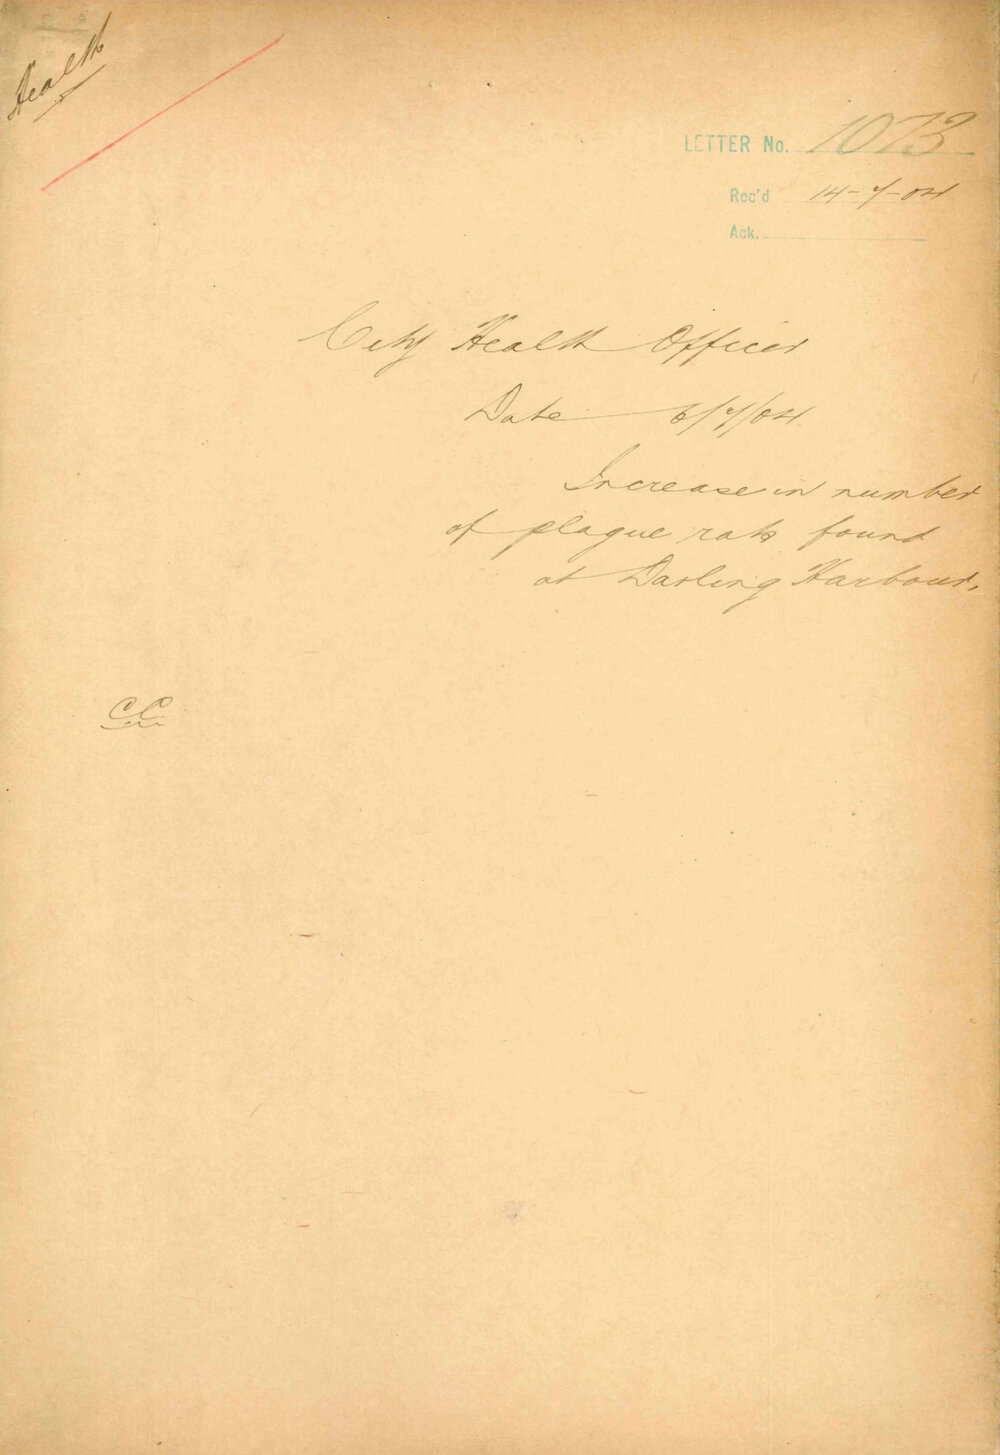 Health
LETTER No. 1073
Rec'd 14-7-04
Ack.
City Health Officer
Date 6/7/04
Increase in number
of plague rats found
at Darling Harbour.
CC